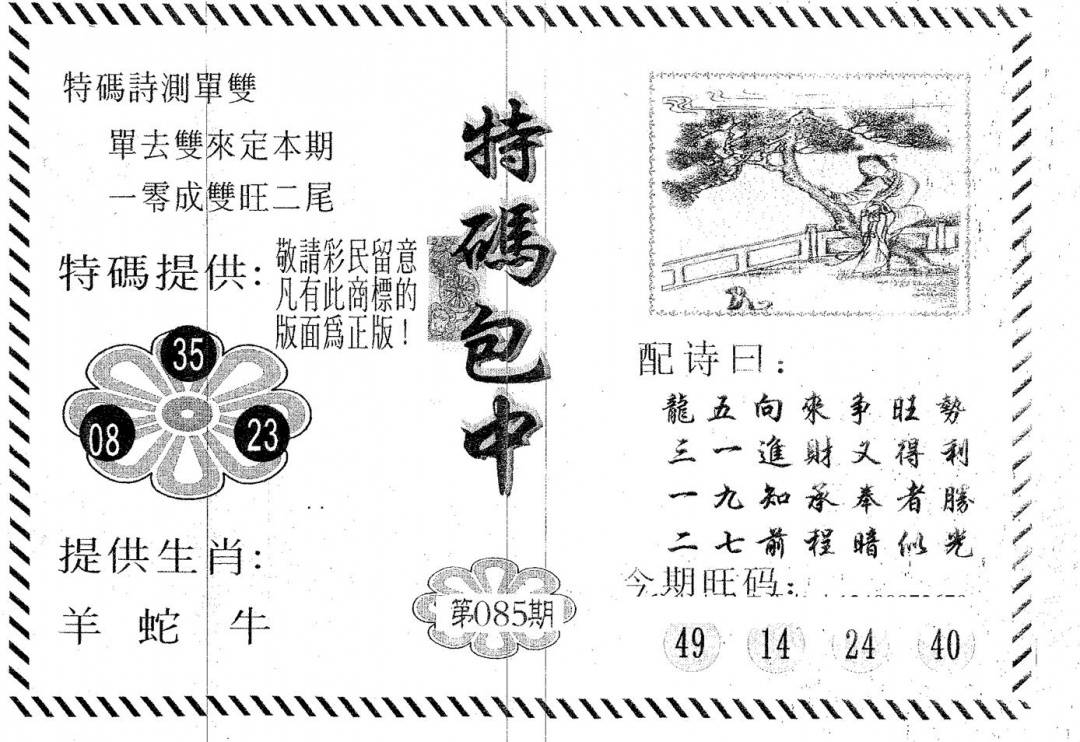 特碼詩測單雙
單去雙來定本期
一零成雙旺二尾
特碼提供:
敬請彩民留意
凡有此商標的
版面爲正版！
35
08
23
提供生肖:
羊 蛇 牛
特碼包中
第085期
配诗曰:
龍五向來爭旺勢
三一進財又得利
一九知承奉者勝
二七前程暗似光
今期旺码:
49 14 24 40